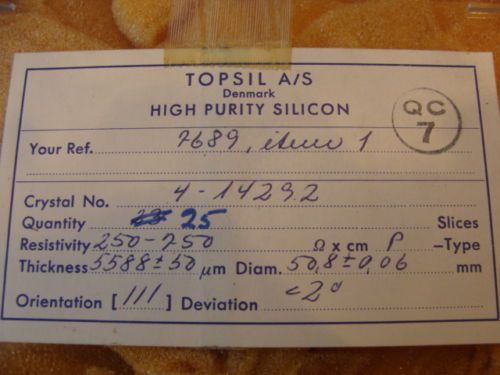 TOPSIL A/S
Denmark
HIGH PURITY SILICON
QC
7
Your Ref. 7689, item 1
Crystal No. 4-14292
Quantity 25 Slices
Resistivity 250-750 Ω x cm P -Type
Thickness 5588 ± 50 μm Diam. 50,8 ± 0,06 mm
Orientation [111] Deviation <2°